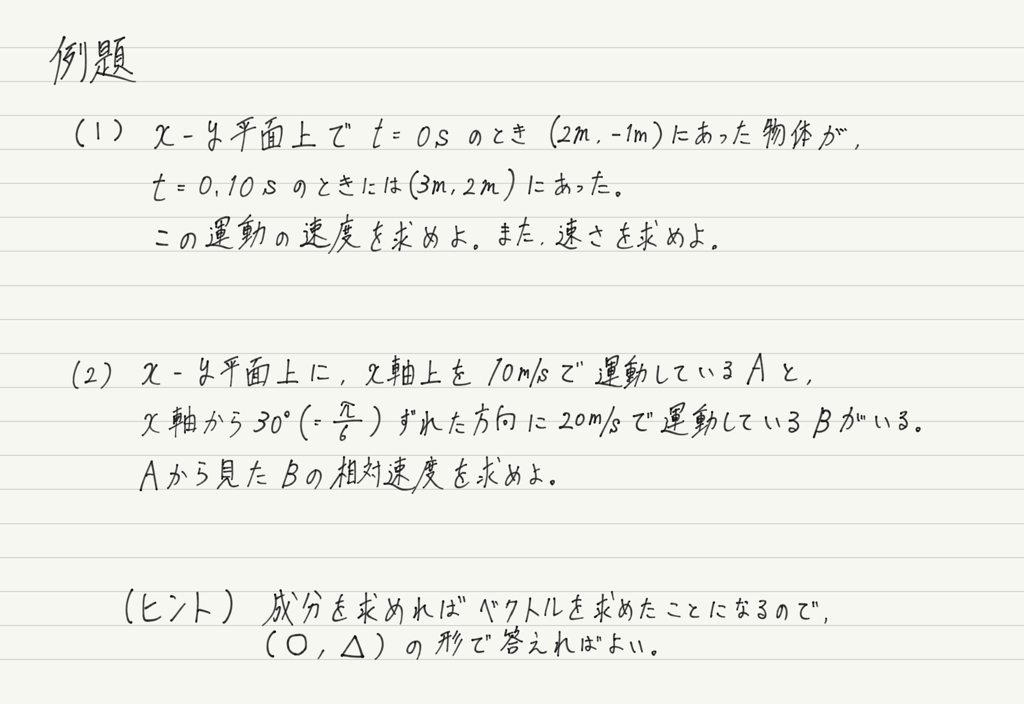 例題
(1) x-y平面上で t=0s のとき (2m, -1m)にあった物体が,
t=0.10s のときには(3m, 2m)にあった。
この運動の速度を求めよ。また, 速さを求めよ。
(2) x-y平面上に, x軸上を 10m/s で 運動している Aと,
x軸から 30°(=π/6) ずれた方向に 20m/s で 運動している Bがいる。
Aから見た Bの相対速度を求めよ。
(ヒント) 成分を求めれば ベクトルを求めたことになるので,
(○, △) の 形で 答えればよい。